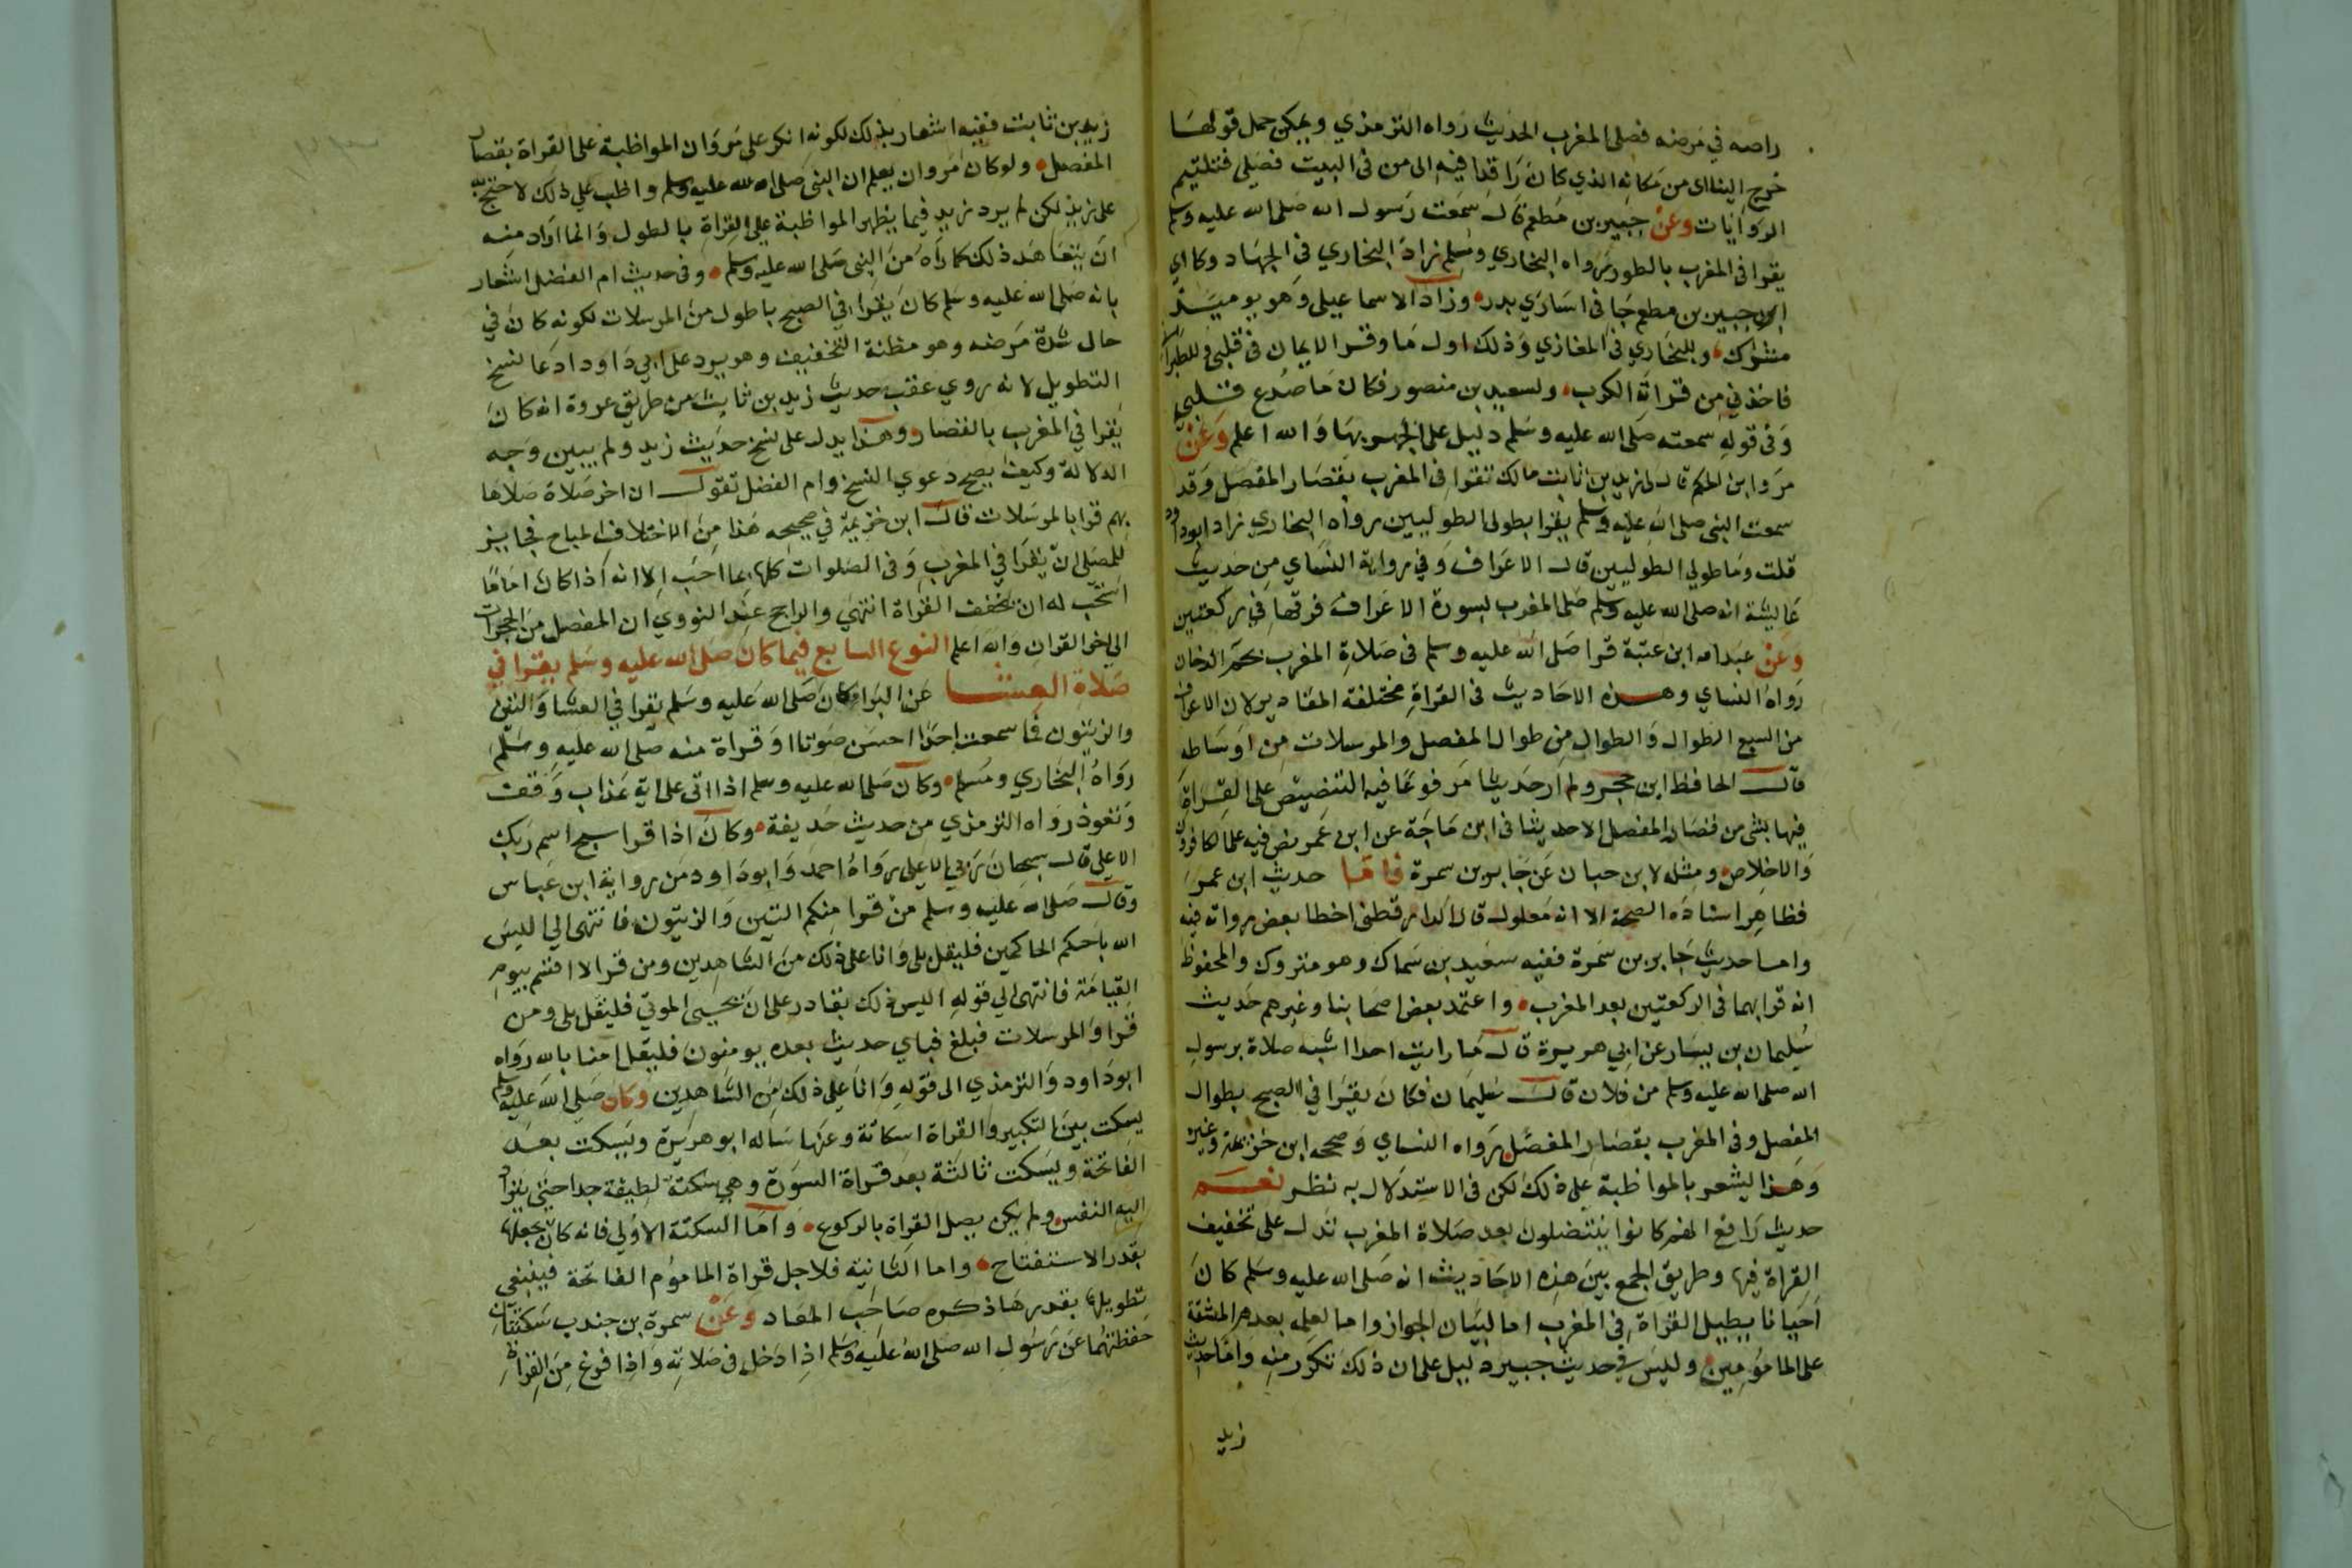 راصه في مرضه فصلى المغرب الحديث رواه الترمذي ويمكن حمل قولها
خرج الينا اى من مكانه الذي كان راقدا فيه الى من فى البيت فصلى فتلتيم
الروايات وعن جبير بن مطعم قال سمعت رسول الله صلى الله عليه وسلم
يقرا فى المغرب بالطور رواه البخاري ومسلم زاد البخاري فى الجهاد وكان اي
جبير بن مطعم جا فى اسارى بدر وزاد الاسماعيلى وهو يوميذ
مشرك وللبخاري فى المغازي وذلك اول ما وقر الايمان فى قلبي وللطبراني
فاخذني من قراته الكرب ولسعيد بن منصور فكان ما صدع قلبي
وفى قوله سمعته صلى الله عليه وسلم دليل على الجهر بها والله اعلم وعن
مروان بن الحكم قال لى زيد بن ثابت مالك تقرا فى المغرب بقصار المفصل وقد
سمعت النبى صلى الله عليه وسلم يقرا بطولى الطوليين رواه البخاري زاد ابوداود
قلت وما طولي الطوليين قال الاعراف وفي رواية النساي من حديث
عايشة انه صلى الله عليه وسلم صلى المغرب بسورة الاعراف فرقها فى ركعتين
وعن عبدالله ابن عتبة قرا صلى الله عليه وسلم فى صلاة المغرب بحم الدخان
رواه النساي وهذه الاحاديث فى القراة مختلفة المقادير لان الاعراف
من السبع الطوال والطوال من طوال المفصل والمرسلات من اوساطه
قال الحافظ ابن حجر ولم ار حديثا مرفوعا فيه التنصيص على القراة
فيها بشى من قصار المفصل الا حديثا فى ابن ماجة عن ابن عمر نص فيه على الكافرون
والاخلاص ومثله لابن حبان عن جابر بن سمرة فاما حديث ابن عمر
فظاهر اسناده الصحة الا انه معلول قال الدارقطنى اخطا بعض رواته فيه
واما حديث جابر بن سمرة ففيه سعيد بن سماك وهو متروك والمحفوظ
انه قرا بهما فى الركعتين بعد المغرب واعتمد بعض اصحابنا وغيرهم حديث
سليمان بن يسار عن ابي هريرة قال ما رايت احدا اشبه صلاة برسول
الله صلى الله عليه وسلم من فلان قال سليمان فكان يقرا في الصبح بطوال
المفصل وفى المغرب بقصار المفصل رواه النساي وصححه ابن خزيمة وغيره
وهذا يشعر بالمواظبة على ذلك لكن فى الاستدلال به نظر نعم
حديث رافع انهم كانوا ينتضلون بعد صلاة المغرب تدل على تخفيف
القراة فيها وطريق الجمع بين هذه الاحاديث انه صلى الله عليه وسلم كان
احيانا يطيل القراة فى المغرب اما لبيان الجواز واما لعلمه بعدم المشقة
على المامومين وليس في حديث جبير دليل على ان ذلك تكرر منه واما حديث
زيد
زيد بن ثابت ففيه اشعار بذلك لكونه انكر على مروان المواظبة على القراة بقصار
المفصل ولو كان مروان يعلم ان النبى صلى الله عليه وسلم واظب على ذلك لاحتج به
على زيد لكن لم يرد زيد فيما يظهر المواظبة على القراة بالطول وانما اراد منه
ان يتعاهد ذلك كما راه من النبى صلى الله عليه وسلم وفى حديث ام الفضل اشعار
بانه صلى الله عليه وسلم كان يقرا فى الصبح باطول من المرسلات لكونه كان في
حال شدة مرضه وهو مظنة التخفيف وهو يرد على ابي داود ادعا نسخ
التطويل لانه روي عقب حديث زيد بن ثابت من طريق عروة انه كان
يقرا في المغرب بالقصار وهذا يدل على نسخ حديث زيد ولم يبين وجه
الدلالة وكيف يصح دعوي النسخ وام الفضل تقول ان اخر صلاة صلاها
بهم قرا بالمرسلات قال ابن خزيمة في صحيحه هذا من الاختلاف المباح فجايز
للمصلى ان يقرا في المغرب وفى الصلوات كلها بما احب الا انه اذا كان اماما
استحب له ان يخفف القراة انتهى والراجح عند النووي ان المفصل من الحجرات
الى اخر القران والله اعلم النوع السابع فيما كان صلى الله عليه وسلم يقرا في
صلاة العشا عن البرا كان صلى الله عليه وسلم يقرا في العشا والتين
والزيتون فما سمعت احدا احسن صوتا او قراة منه صلى الله عليه وسلم
رواه البخاري ومسلم وكان صلى الله عليه وسلم اذا اتى على اية عذاب وقف
وتعوذ رواه الترمذي من حديث حذيفة وكان اذا قرا سبح اسم ربك
الاعلى قال سبحان ربي الاعلى رواه احمد وابو داود من رواية ابن عباس
وقال صلى الله عليه وسلم من قرا منكم التين والزيتون فانتهى الي اليس
الله باحكم الحاكمين فليقل بلى وانا على ذلك من الشاهدين ومن قرا لا اقسم بيوم
القيامة فانتهى الي قوله اليس ذلك بقادر على ان يحيى الموتي فليقل بلى ومن
قرا والمرسلات فبلغ فباي حديث بعده يومنون فليقل امنا بالله رواه
ابوداود والترمذي الى قوله وانا على ذلك من الشاهدين وكان صلى الله عليه وسلم
يسكت بين التكبير والقراة اسكاتة وعنها ساله ابو هريرة ويسكت بعد
الفاتحة ويسكت ثالثة بعد قراة السورة وهي سكتة لطيفة جدا حتى يتراد
اليه النفس ولم يكن يصل القراة بالركوع واما السكتة الاولى فانه كان يجعلها
بقدر الاستفتاح واما الثانية فلاجل قراة الماموم الفاتحة فينبغي
تطويلها بقدرها ذكره صاحب الهاد وعن سمرة بن جندب سكتتان
حفظتهما عن رسول الله صلى الله عليه وسلم اذا دخل فى صلاته واذا فرغ من القراة